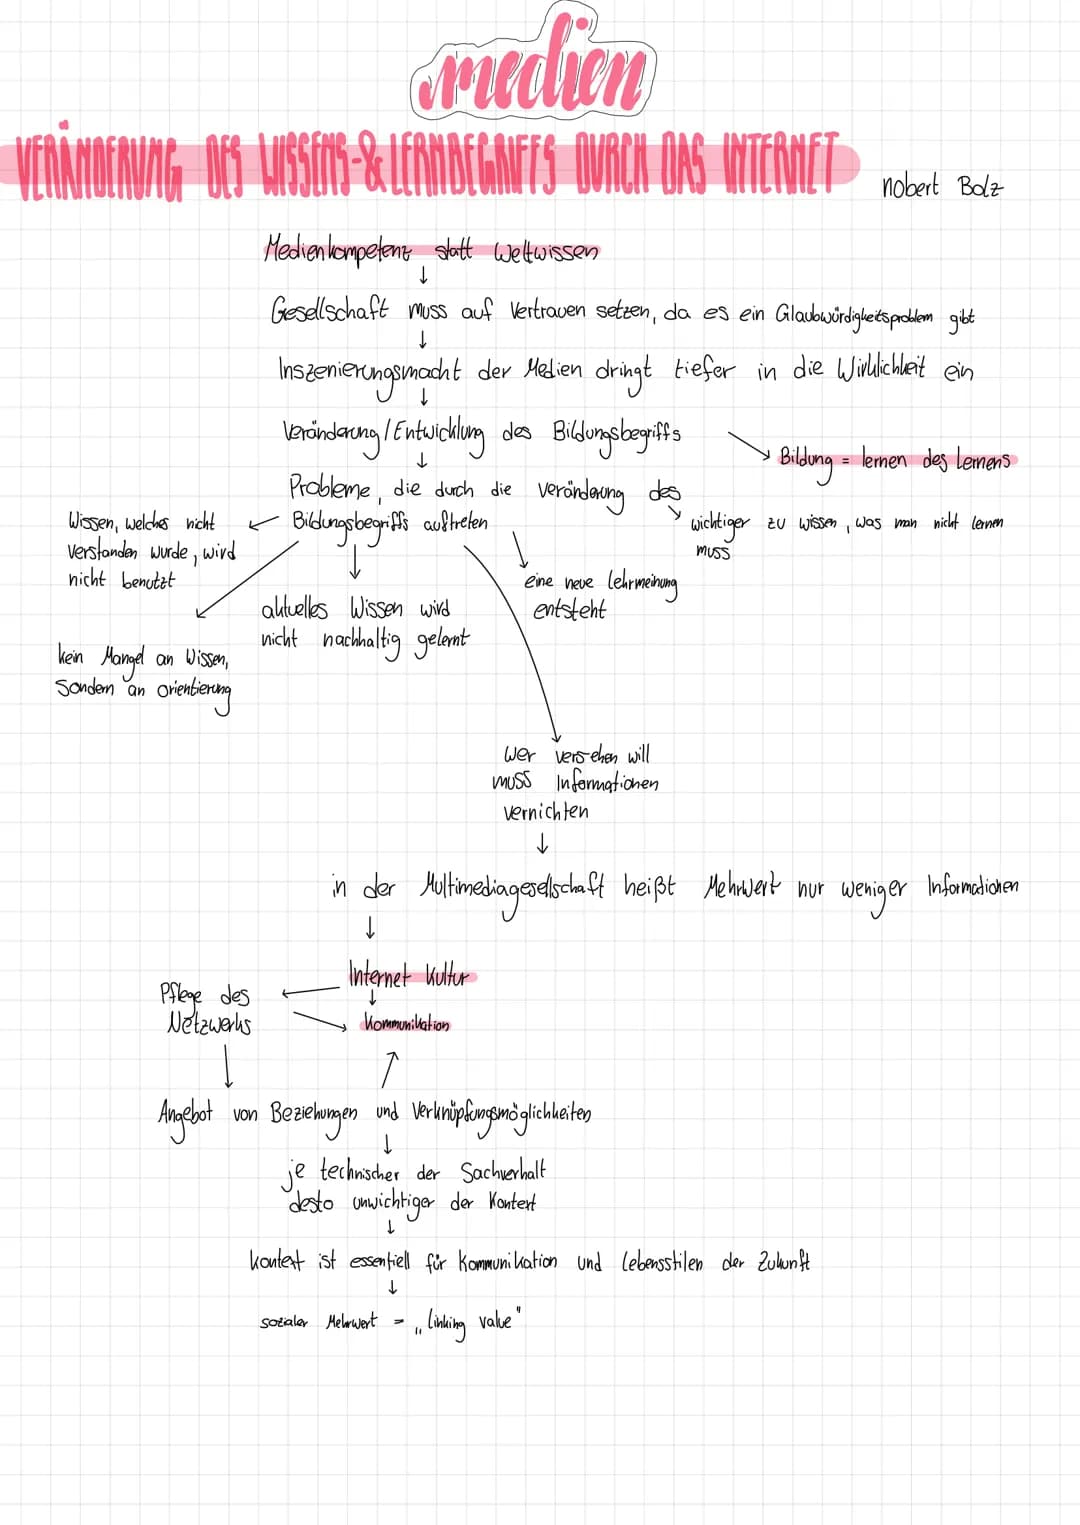 medien
VERÄNDERUNG DES WISSENS-& LERNBEGRIFFS DURCH DAS INTERNET
nobert Bolz
Medienkompetenz statt Weltwissen
↓
Gesellschaft muss auf Vertrauen setzen, da es ein Glaubwürdigkeitsproblem gibt
↓
Inszenierungsmacht der Medien dringt tiefer in die Wirklichkeit ein
↓
Veränderung/Entwicklung des Bildungsbegriffs
→ Bildung = lernen des Lernens
↓
Probleme, die durch die Veränderung des
Bildungsbegriffs auftreten
wichtiger zu wissen, was man nicht lernen
muss
Wissen, welches nicht
verstanden wurde, wird
nicht benutzt
eine neue Lehrmeinung
entsteht
aktuelles Wissen wird
nicht nachhaltig gelernt
kein Mangel an Wissen,
Sondern an orientierung
wer vers ehen will
muss Informationen
vernichten
↓
in der Multimediagesellschaft heißt Mehrwert nur weniger Informationen
↓
Internet Kultur
↓
Pflege des
Netzwerks
Kommunikation
Angebot von Beziehungen und Verknüpfungsmöglichkeiten
↓
je technischer der Sachverhalt
desto unwichtiger der Kontext
↓
kontext ist essentiell für Kommunikation und Lebensstilen der Zukunft
↓
sozialer Mehrwert = „linking value"